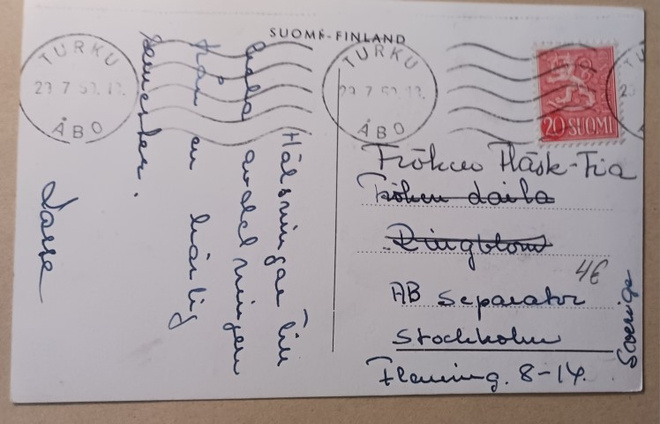 SUOMI-FINLAND
TURKU
ÅBO
TURKU
ÅBO
20 SUOMI
Hälsningar till
hela avdelningen
från en härlig
semester.
Lasse
Fröken Fläsk-Fia
Fröken Laila
Ringblom
AB Separator
Stockholm
Fleming. 8-14.
Sverige
4€